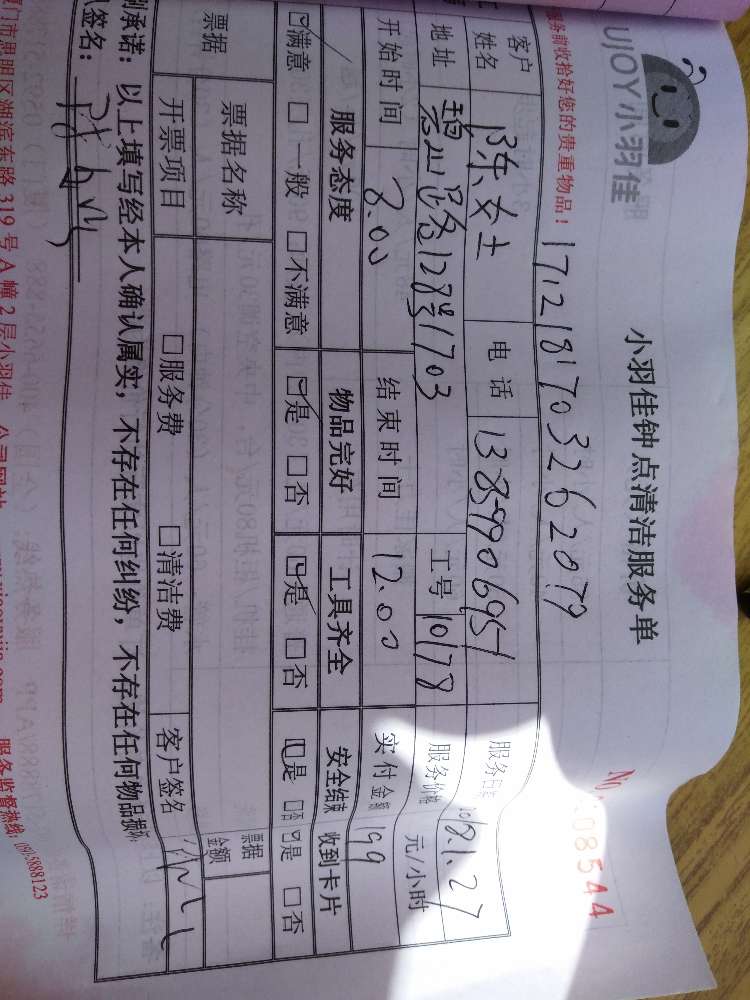 UJOY小羽佳
小羽佳钟点清洁服务单
08544
服务前收拾好您的贵重物品！
1712181703262079
客户姓名 陈女士 电话 13859906951 服务日期 2018.1.27
地址 碧山路128号1703 工号 10178 服务价格 元/小时
开始时间 8.00 结束时间 12.00 实付金额 199
服务态度 物品完好 工具齐全 安全结束 收到卡片
满意 □一般 □不满意 是 □否 是 □否 是 □否 是 □否
票据 票据名称 票据金额
开票项目 □服务费 □清洁费 客户签名
别承诺：以上填写经本人确认属实，不存在任何纠纷，不存在任何物品损坏
人签名：
厦门市思明区湖滨东路319号A幢2层小羽佳 公司网站 服务监督热线：(592)5888123